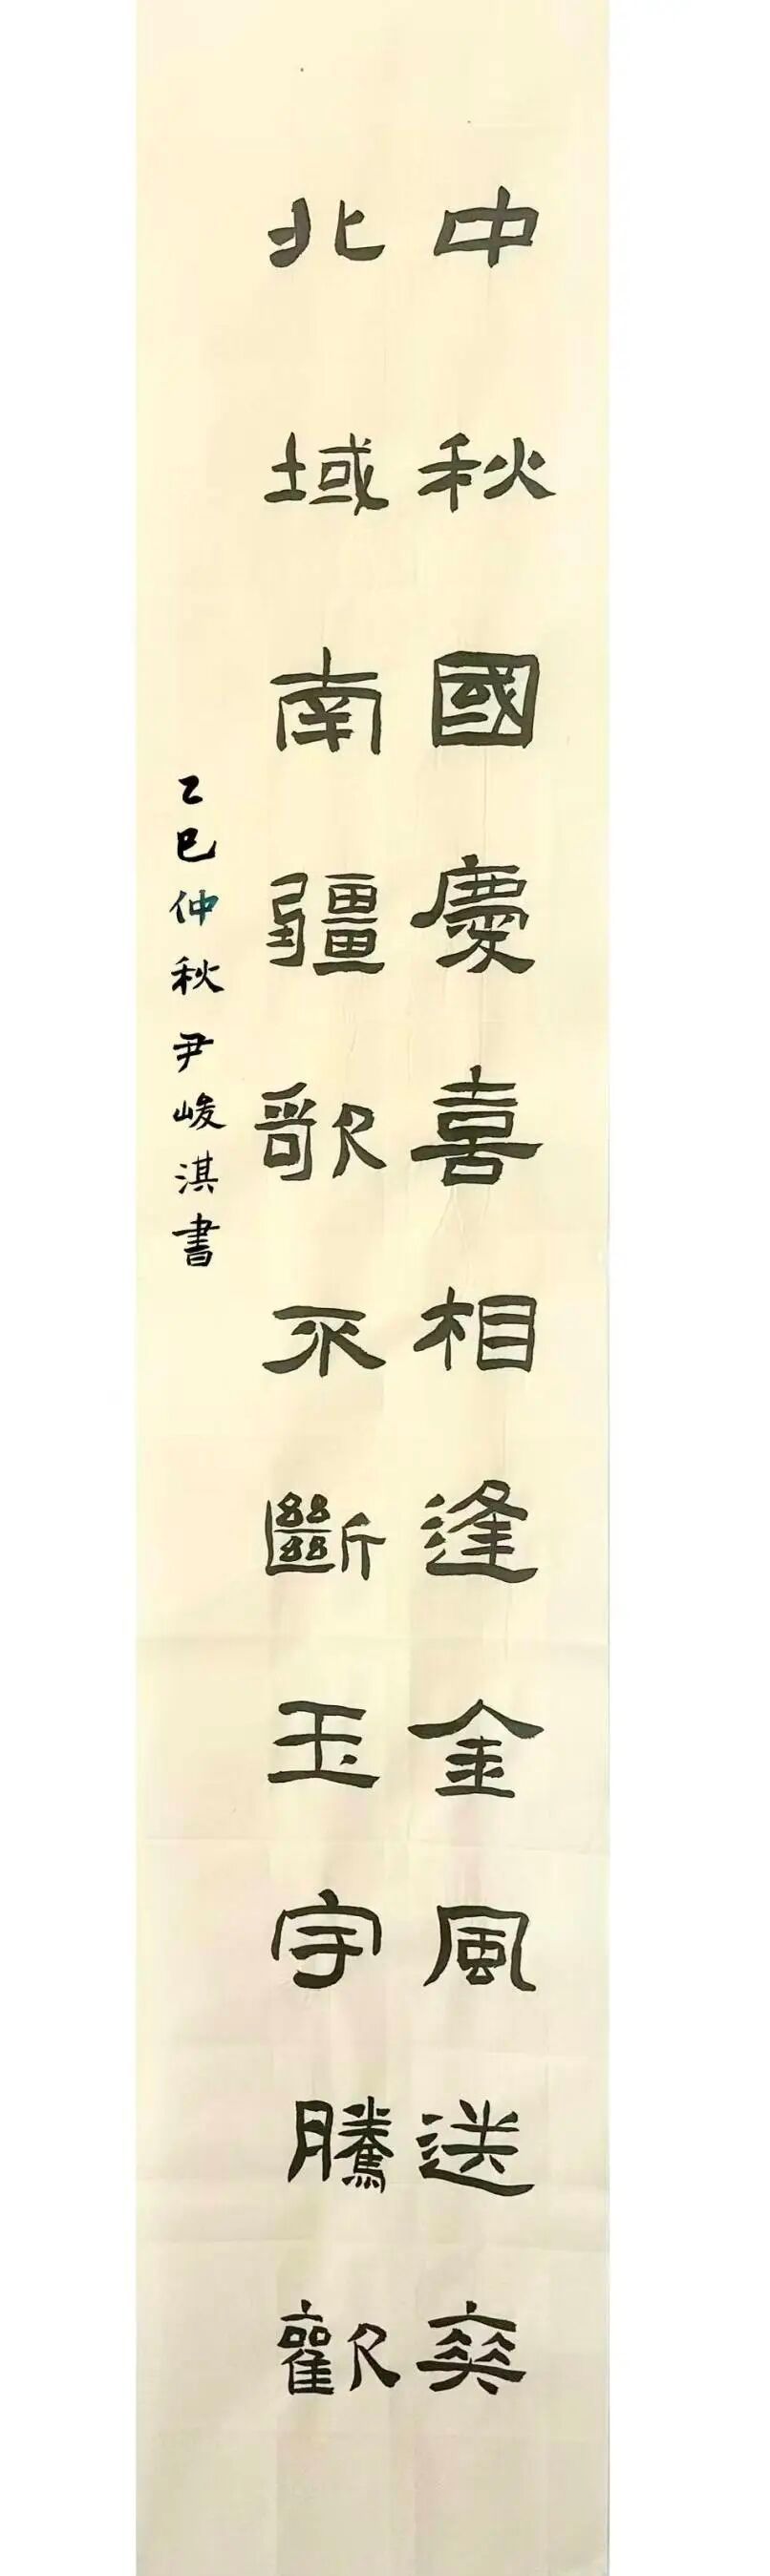 中秋國慶喜相逢金風送爽
北域南疆歌不斷玉宇騰歡
乙巳仲秋尹峻淇書